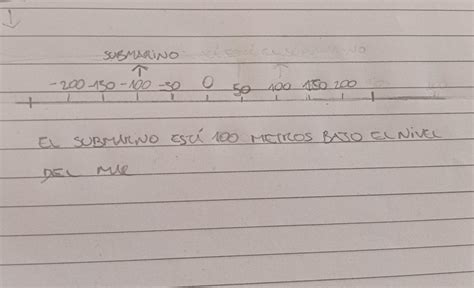 SUBMARINO
-200 -150 -100 -50 0 50 100 150 200
EL SUBMARINO ESTÁ 100 METROS BAJO EL NIVEL
DEL MAR